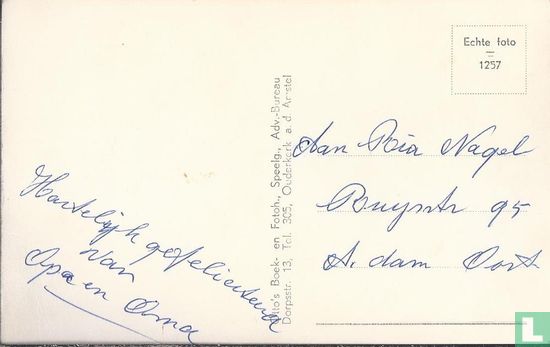 Hartelijk gefeliciteerd
van
Opa en Oma
Otto's Boek- en Fotoh., Speelg., Adv.-Bureau
Dorpsstr. 13, Tel. 305, Ouderkerk a. d. Amstel
Echte foto
1257
Aan Ria Nagel
Ruyschstr 95
A.dam Oost